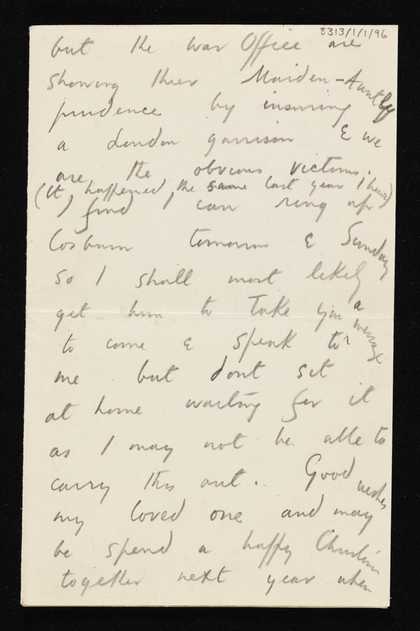 8313/1/1/96
but the War Office are
showing their Maiden-Auntly
prudence by insuring
a London garrison & we
are the obvious victims.
(it happened the same last year I hear)
I find I can ring up
Cosham tomorrow & Sunday
so I shall most likely
get him to take you a message
to come & speak to
me but dont sit
at home waiting for it
as I may not be able to
carry this out.. Good wishes
my loved one and may
be spend a happy Christmas
together next year when